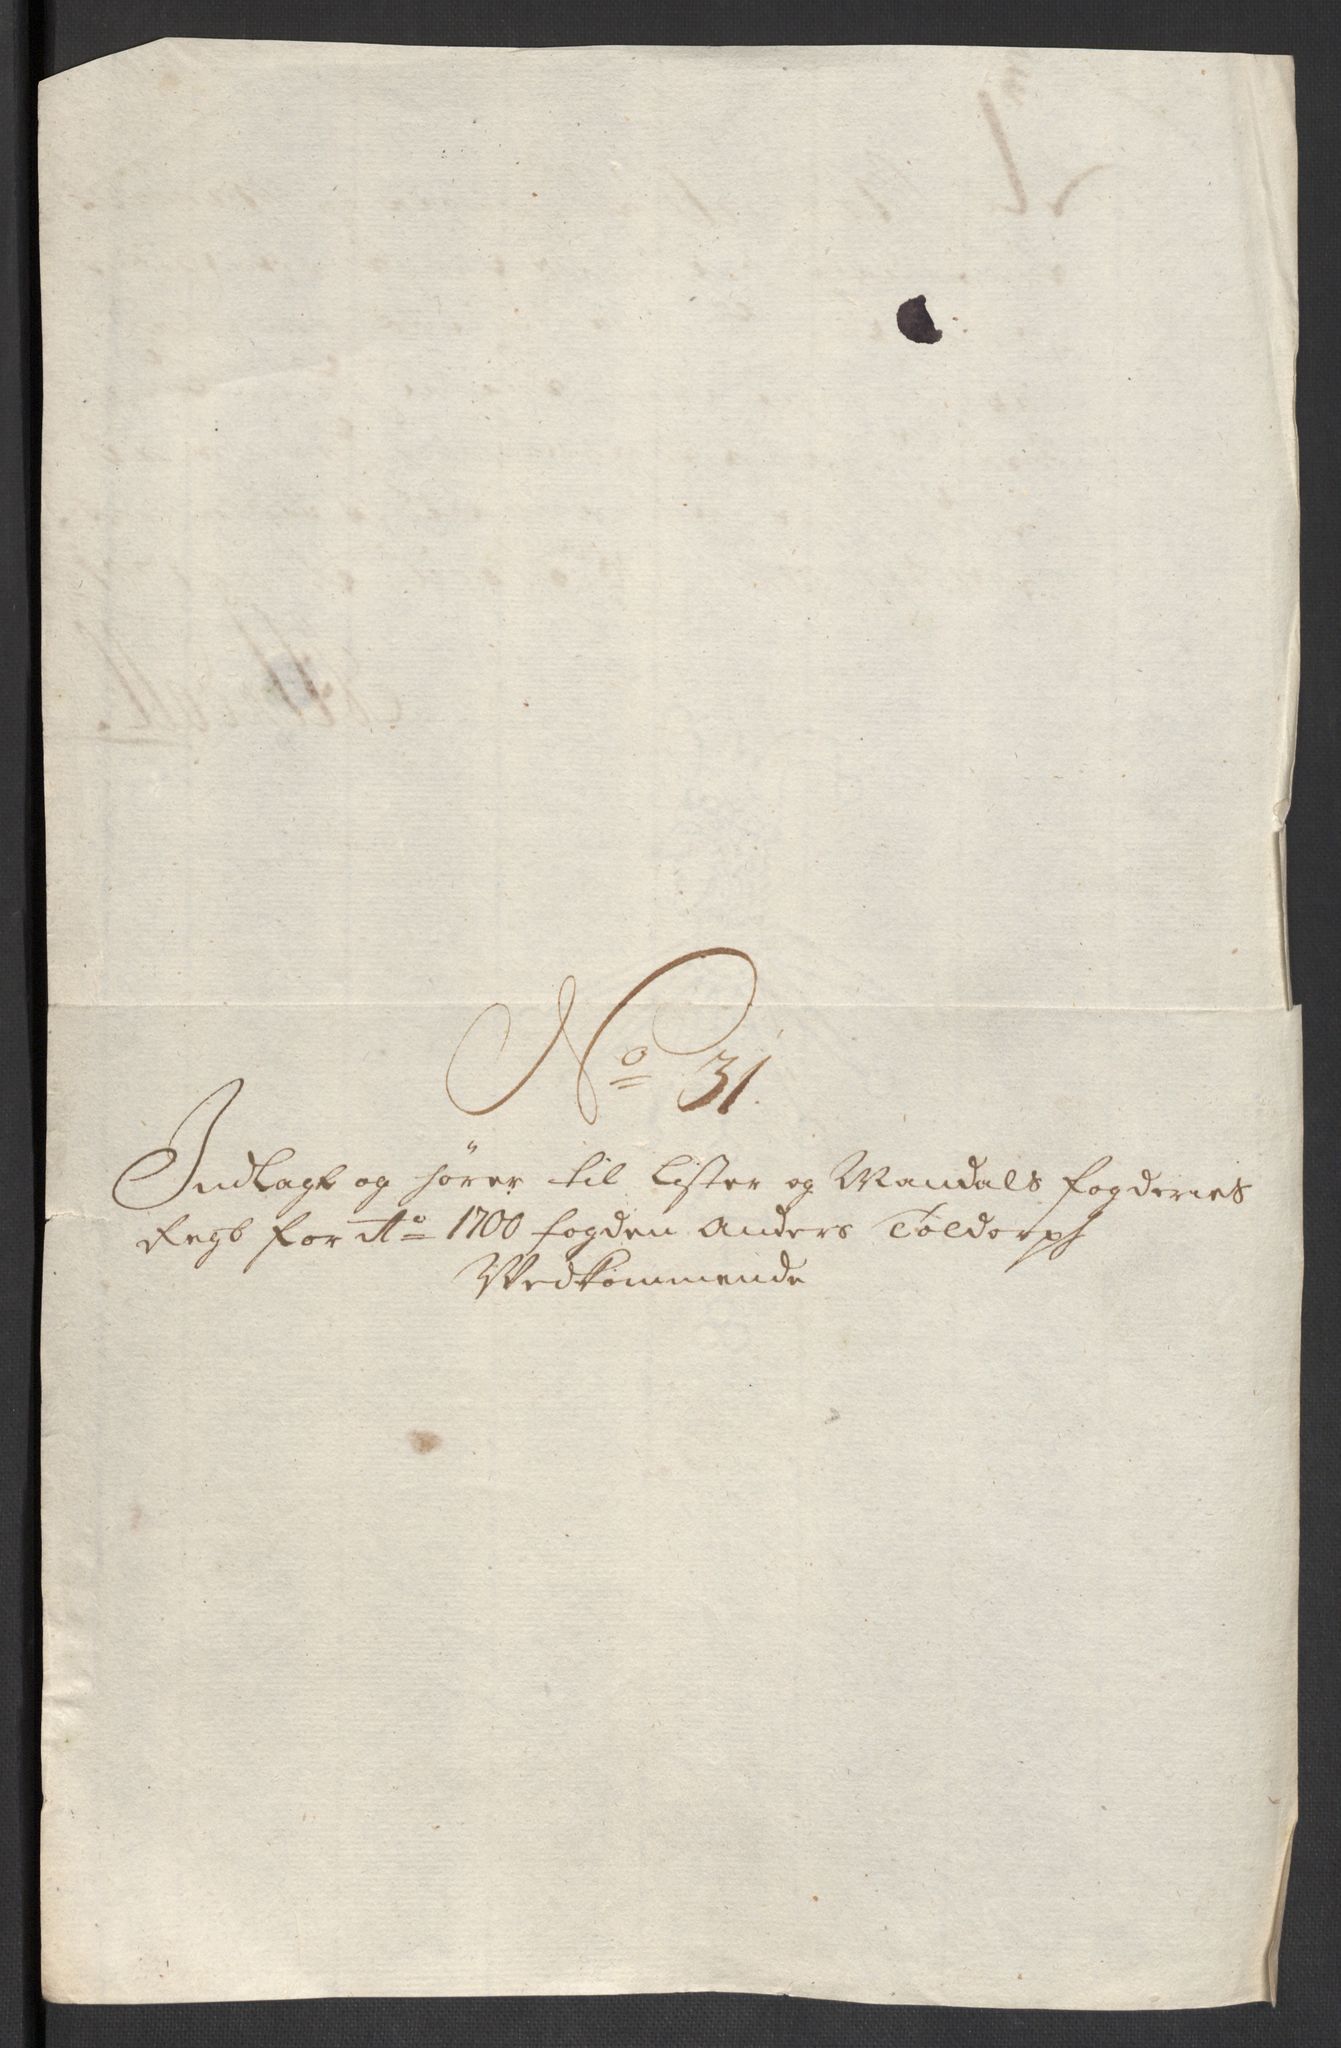 No 31.
Indlagt og hører til Lister og Mandals fogderies
Regb for Ao 1700 fogden Anders Toldorph
Vedkommende